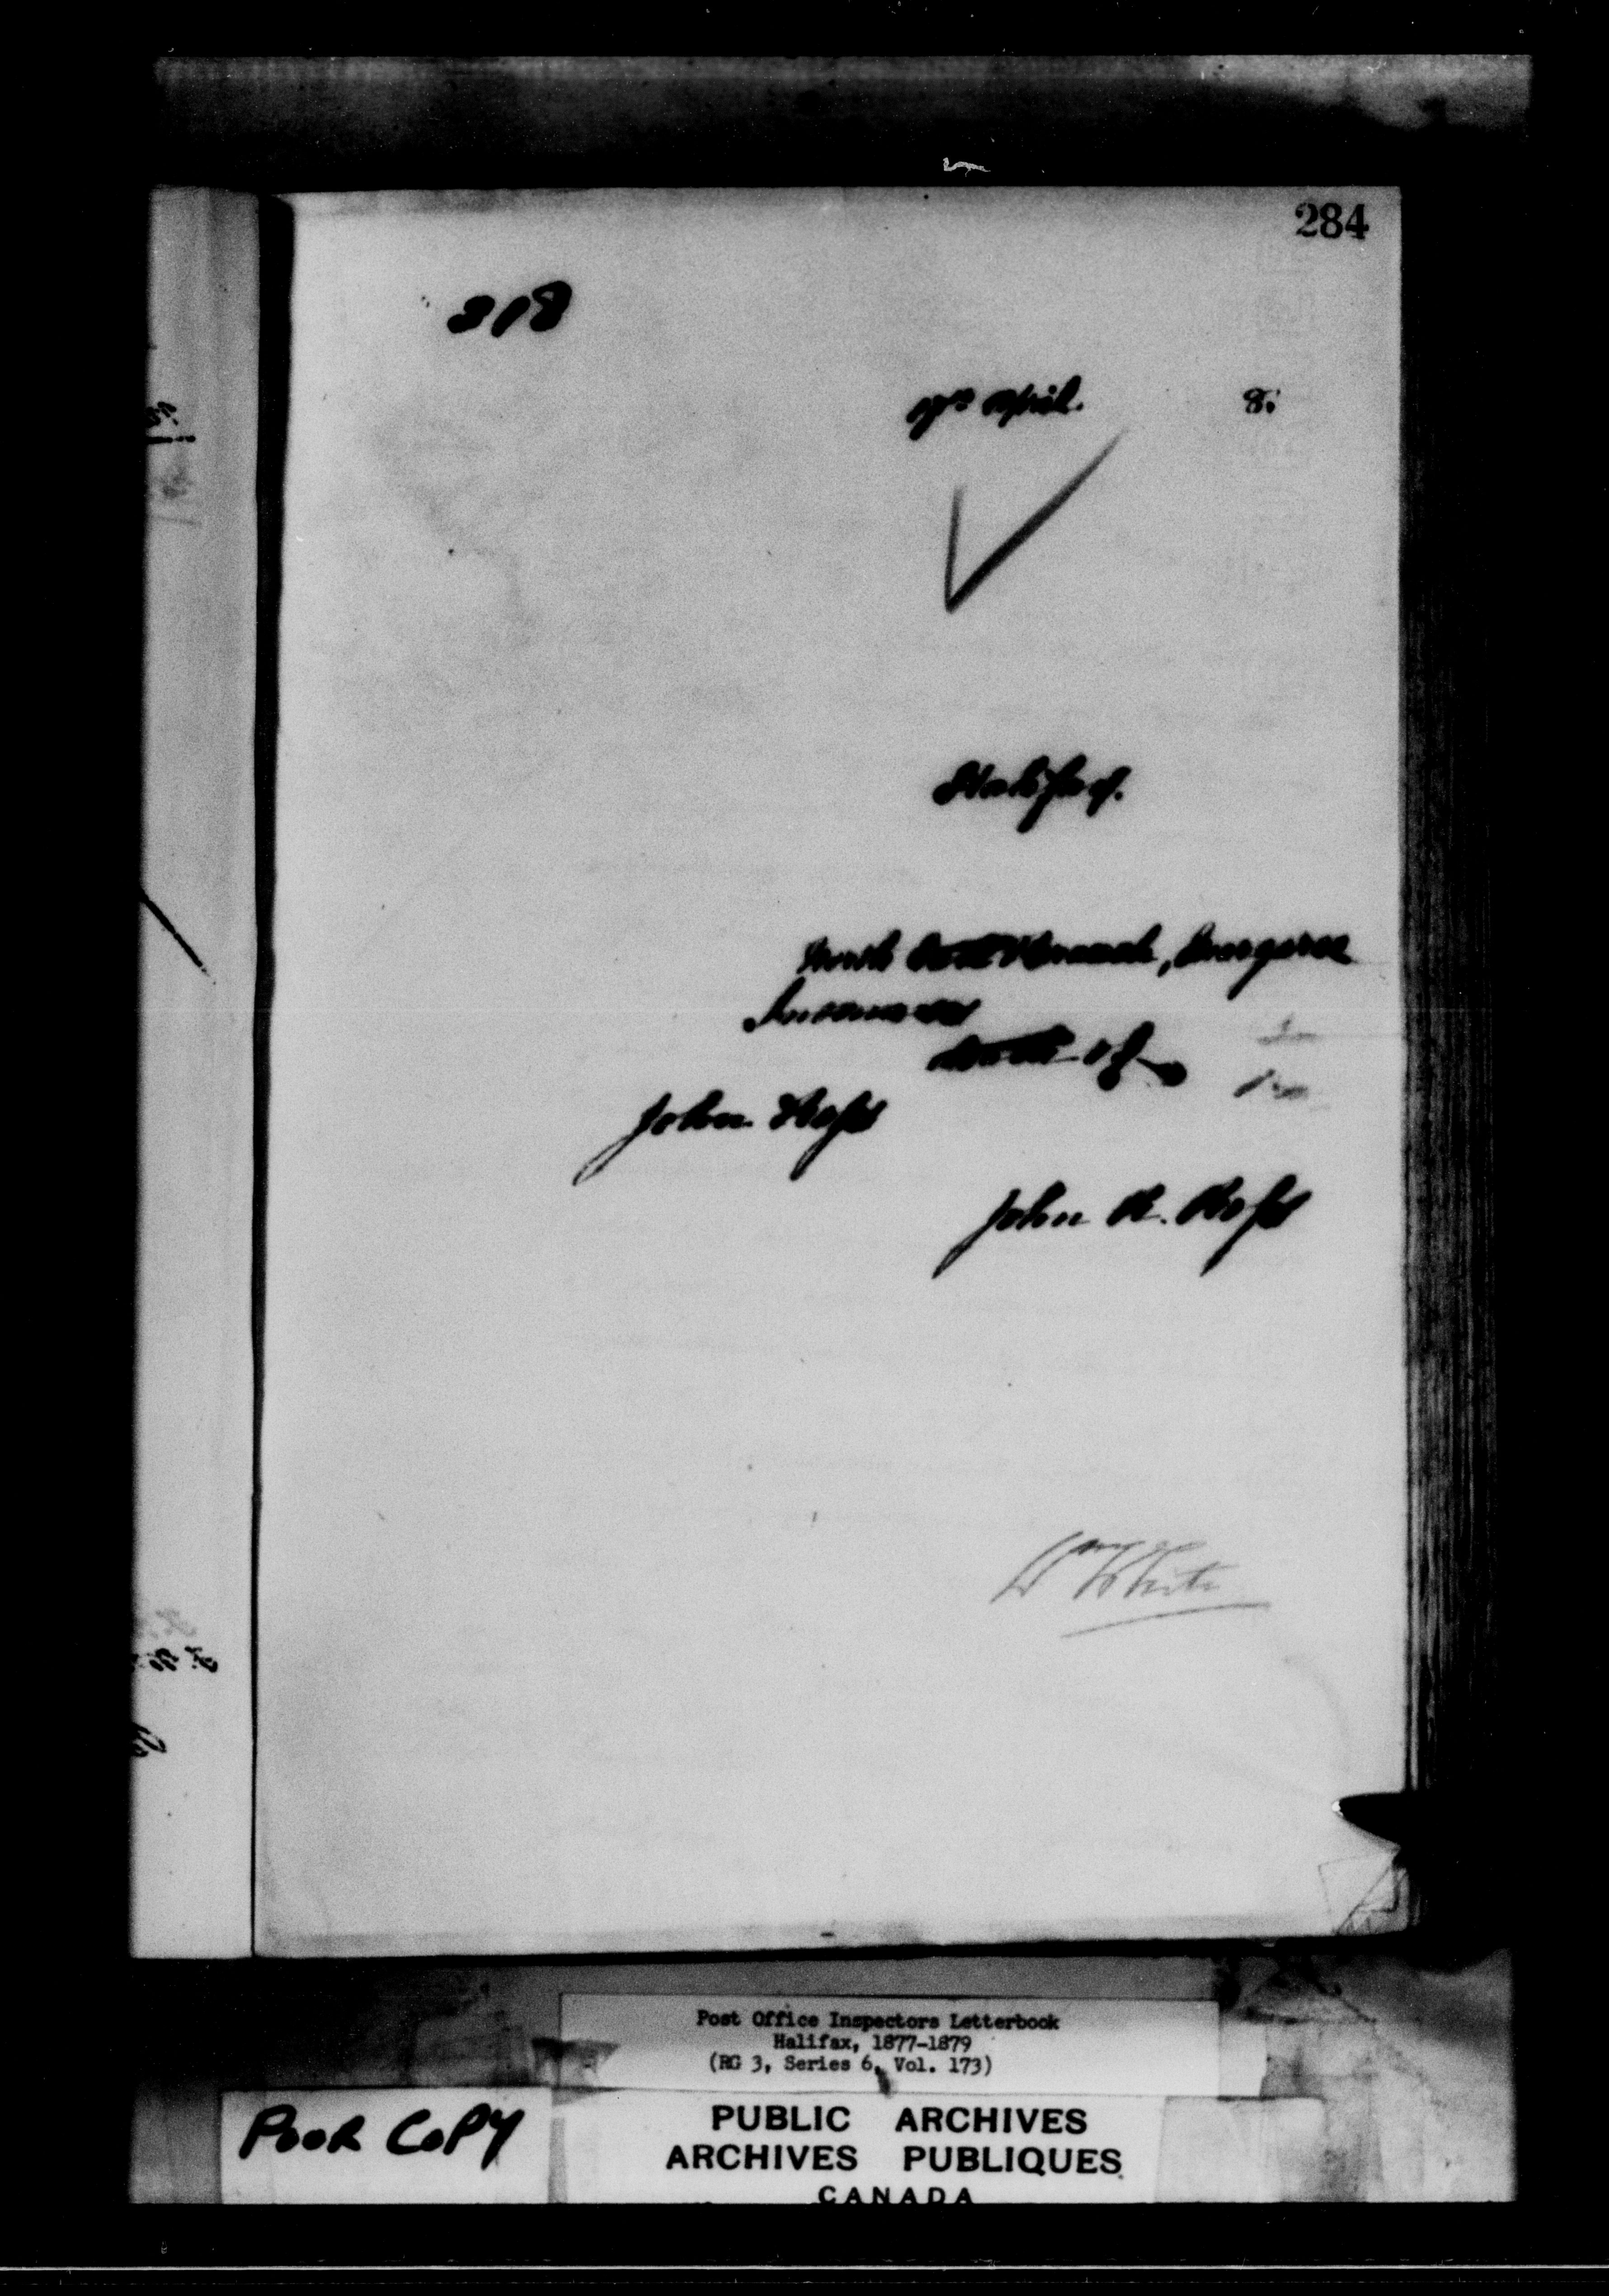 284
318
April. 8.
Halifax.
North East Branch, Margaree
Inverness
John Ross
John R. Ross
White
Post Office Inspectors Letterbook
Halifax, 1877-1879
(RG 3, Series 6, Vol. 173)
POOR COPY
PUBLIC ARCHIVES
ARCHIVES PUBLIQUES
CANADA